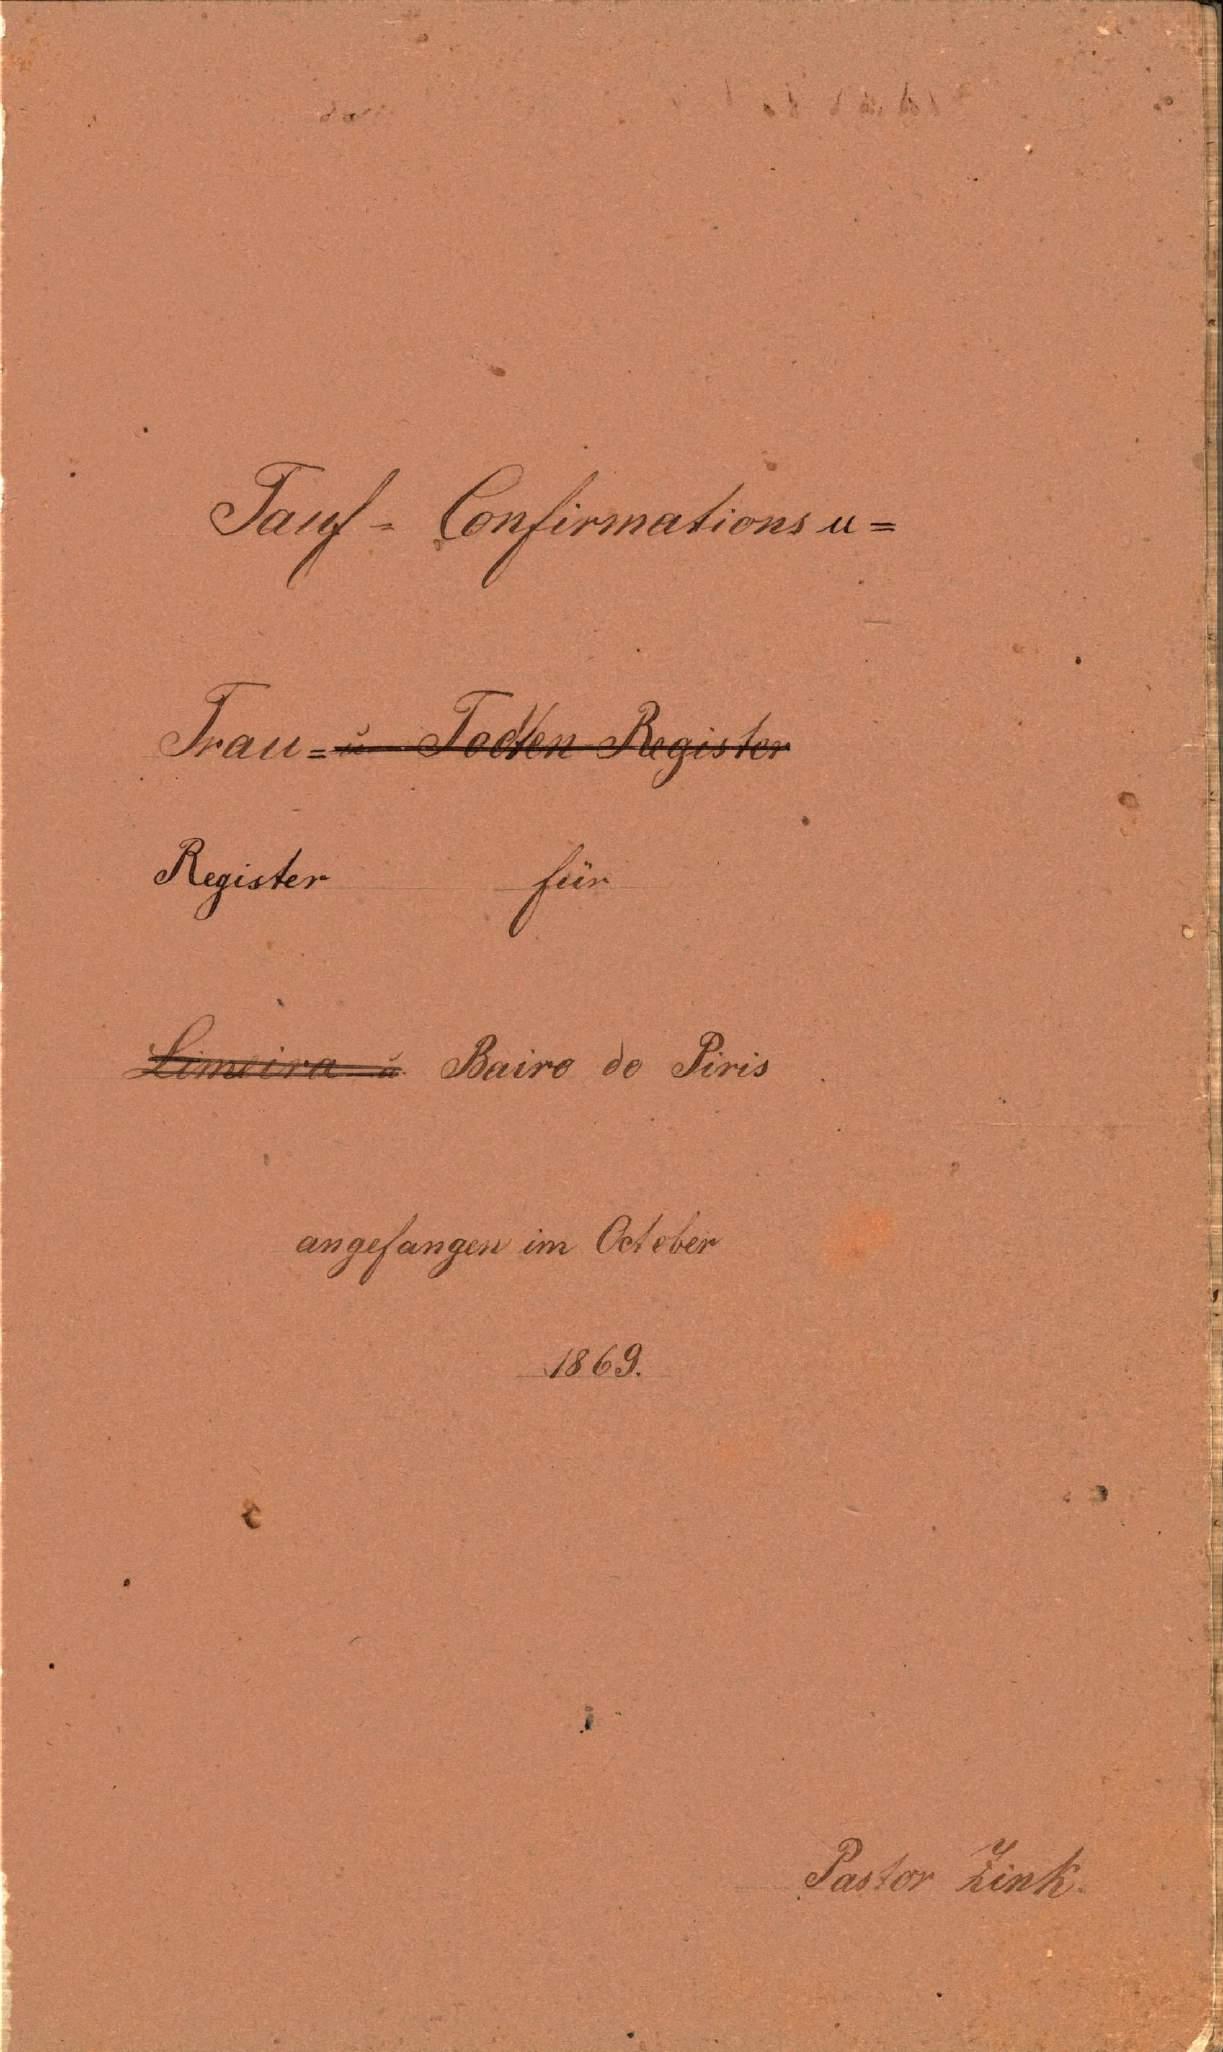 Tauf = Confirmations u =
Trau = u Todten Register
Register für
Limeira u Bairo do Piris
angefangen im October
1869.
Pastor Zink.